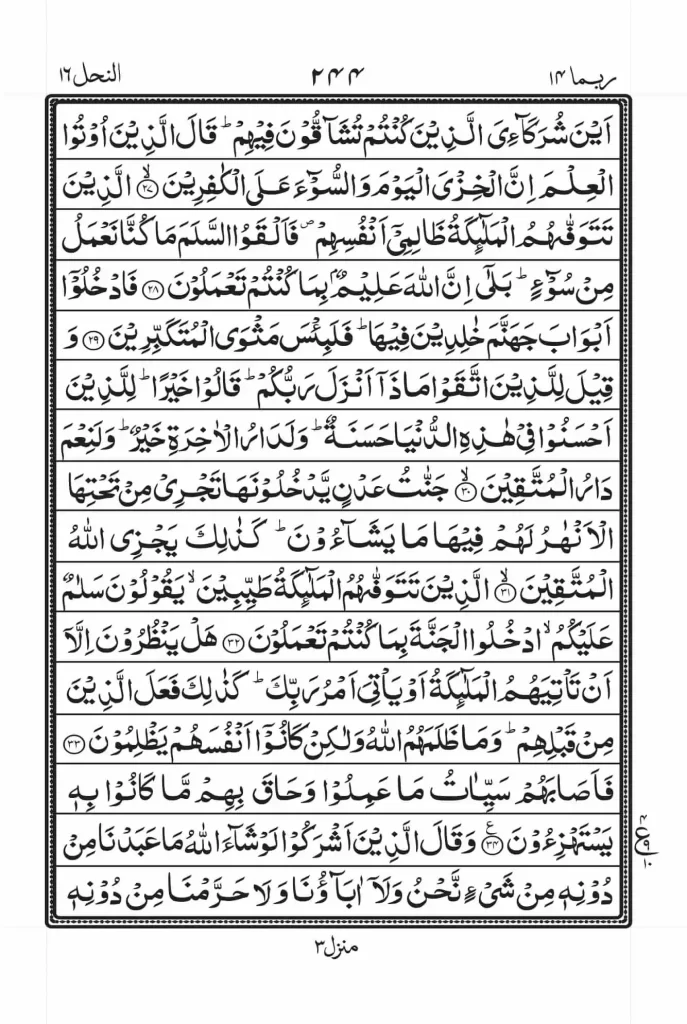 ربما ١٤ ٢٤٤ النحل ١٦
اَيْنَ شُرَكَآءِىَ الَّذِيْنَ كُنْتُمْ تُشَآقُّوْنَ فِيْهِمْ ؕ قَالَ الَّذِيْنَ اُوْتُوا
الْعِلْمَ اِنَّ الْخِزْىَ الْيَوْمَ وَالسُّوْٓءَ عَلَى الْكٰفِرِيْنَ ۙ‏﴿۲۷﴾ الَّذِيْنَ
تَتَوَفّٰٮهُمُ الْمَلٰٓئِكَةُ ظَالِمِىْۤ اَنْفُسِهِمْ ۖ فَاَلْقَوُا السَّلَمَ مَا كُنَّا نَعْمَلُ
مِنْ سُوْٓءٍ ؕ بَلٰٓى اِنَّ اللّٰهَ عَلِيْمٌۢ بِمَا كُنْتُمْ تَعْمَلُوْنَ ﴿۲۸﴾ فَادْخُلُوْۤا
اَبْوَابَ جَهَنَّمَ خٰلِدِيْنَ فِيْهَا ؕ فَلَبِئْسَ مَثْوَى الْمُتَكَبِّرِيْنَ ﴿۲۹﴾ وَ
قِيْلَ لِلَّذِيْنَ اتَّقَوْا مَاذَاۤ اَنْزَلَ رَبُّكُمْ ؕ قَالُوْا خَيْرًا ؕ لِلَّذِيْنَ
اَحْسَنُوْا فِىْ هٰذِهِ الدُّنْيَا حَسَنَةٌ ؕ وَلَدَارُ الْاٰخِرَةِ خَيْرٌ ؕ وَلَنِعْمَ
دَارُ الْمُتَّقِيْنَ ۙ‏﴿۳۰﴾ جَنّٰتُ عَدْنٍ يَّدْخُلُوْنَهَا تَجْرِىْ مِنْ تَحْتِهَا
الْاَنْهٰرُ لَهُمْ فِيْهَا مَا يَشَآءُوْنَ ؕ كَذٰلِكَ يَجْزِى اللّٰهُ
الْمُتَّقِيْنَ ۙ‏﴿۳۱﴾ الَّذِيْنَ تَتَوَفّٰٮهُمُ الْمَلٰٓئِكَةُ طَيِّبِيْنَ ۙ يَقُوْلُوْنَ سَلٰمٌ
عَلَيْكُمُ ۙ ادْخُلُوا الْجَنَّةَ بِمَا كُنْتُمْ تَعْمَلُوْنَ ﴿۳۲﴾ هَلْ يَنْظُرُوْنَ اِلَّاۤ
اَنْ تَاْتِيَهُمُ الْمَلٰٓئِكَةُ اَوْ يَاْتِىَ اَمْرُ رَبِّكَ ؕ كَذٰلِكَ فَعَلَ الَّذِيْنَ
مِنْ قَبْلِهِمْ ؕ وَمَا ظَلَمَهُمُ اللّٰهُ وَلٰكِنْ كَانُوْۤا اَنْفُسَهُمْ يَظْلِمُوْنَ ﴿۳۳﴾
فَاَصَابَهُمْ سَيِّاٰتُ مَا عَمِلُوْا وَحَاقَ بِهِمْ مَّا كَانُوْا بِهٖ
يَسْتَهْزِءُوْنَ ﴿۳۴﴾ ع وَقَالَ الَّذِيْنَ اَشْرَكُوْا لَوْ شَآءَ اللّٰهُ مَا عَبَدْنَا مِنْ
دُوْنِهٖ مِنْ شَىْءٍ نَّحْنُ وَلَاۤ اٰبَآؤُنَا وَلَا حَرَّمْنَا مِنْ دُوْنِهٖ
منزل ٣